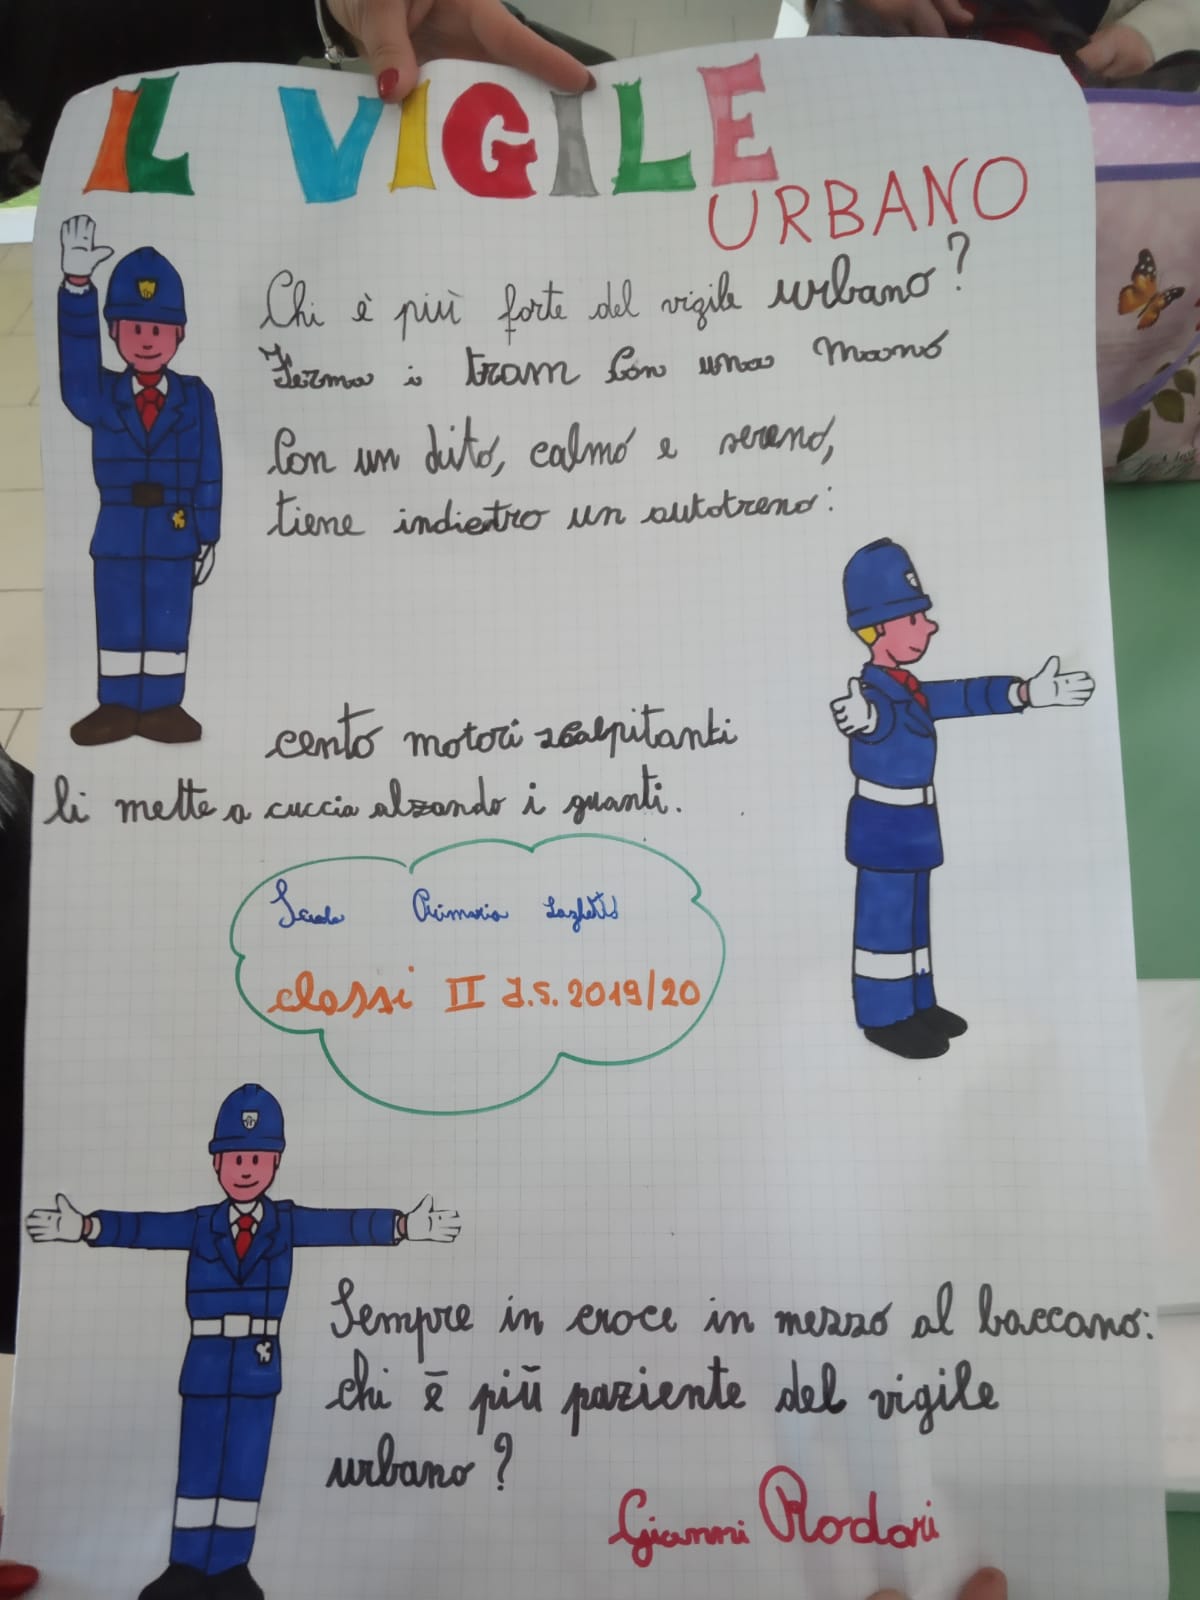 IL VIGILE
URBANO
Chi è più forte del vigile urbano?
Ferma i tram con una mano
Con un dito, calmo e sereno,
tiene indietro un autotreno:
cento motori scalpitanti
li mette a cuccia alzando i guanti.
Scuola Primaria Laghetto
classi II A.S. 2019/20
Sempre in croce in mezzo al baccano:
chi è più paziente del vigile
urbano?
Gianni Rodari